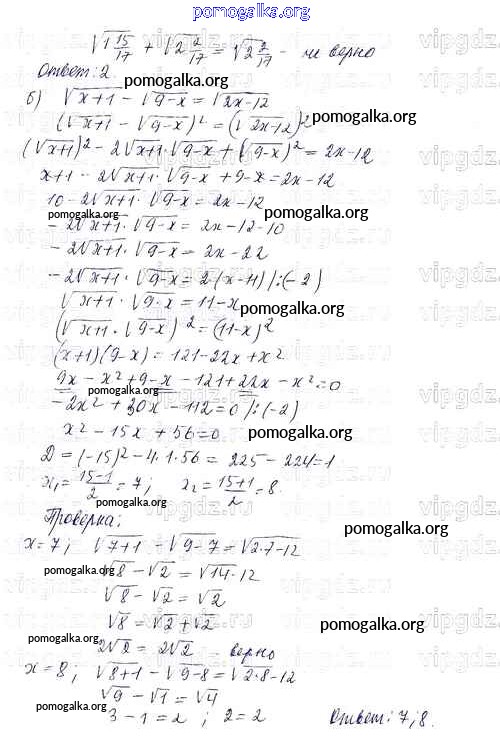 pomogalka.org
√(1 15/17) + √(2 2/17) = √(2 2/17) - не верно
Ответ: 2.
pomogalka.org
б) √(x+1) - √(9-x) = √(2x-12)
(√(x+1) - √(9-x))² = (√(2x-12))²
pomogalka.org
(√(x+1))² - 2√(x+1)·√(9-x) + (√(9-x))² = 2x-12
x+1 - 2√(x+1)·√(9-x) + 9-x = 2x-12
10 - 2√(x+1)·√(9-x) = 2x-12
pomogalka.org
- 2√(x+1)·√(9-x) = 2x-12-10
- 2√(x+1)·√(9-x) = 2x-22
pomogalka.org
- 2√(x+1)·√(9-x) = 2(x-11) /:(-2)
√(x+1)·√(9-x) = 11-x
pomogalka.org
(√(x+1)·√(9-x))² = (11-x)²
(x+1)(9-x) = 121-22x+x²
9x - x² + 9 - x - 121 + 22x - x² = 0
pomogalka.org
-2x² + 30x - 112 = 0 /:(-2)
x² - 15x + 56 = 0
pomogalka.org
D = (-15)² - 4·1·56 = 225 - 224 = 1
x₁ = (15-1)/2 = 7; x₂ = (15+1)/2 = 8.
Проверка:
pomogalka.org
x=7; √(7+1) - √(9-7) = √(2·7-12)
√8 - √2 = √14-12
pomogalka.org
√8 - √2 = √2
√8 = √2 + √2
pomogalka.org
2√2 = 2√2 - верно
pomogalka.org
x=8; √(8+1) - √(9-8) = √(2·8-12)
pomogalka.org
√9 - √1 = √4
pomogalka.org
3 - 1 = 2 ; 2 = 2
Ответ: 7; 8.